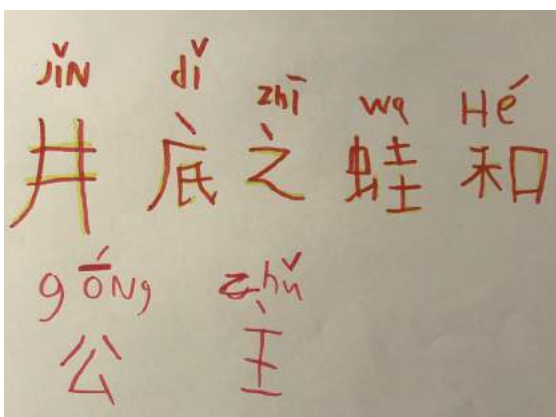 JǏN dǐ zhī wa Hé
井底之蛙和
gōng zhǔ
公主